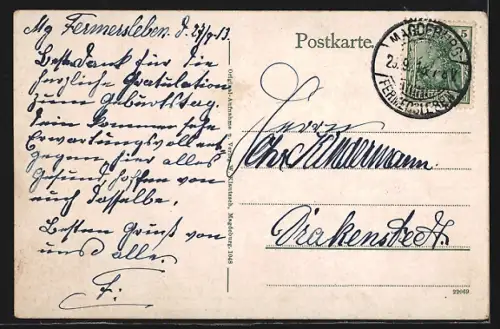 Mg Fermersleben d. 27/9 13.
Besten Dank für die
herzliche Gratulation
zum Geburtstag.
Dein Kommen sehe
Erwartungsvoll ent
gegen, hier alles
Gesund hoffen von
euch dasselbe.
Besten Gruß von
uns alle.
F.
Original-Aufnahme u. Verlag W. Klautzsch, Magdeburg, 1048
Postkarte.
MAGDEBURG
FERMERSLEBEN
5
Herrn
Chr. Lindermann
Drakenstedt.